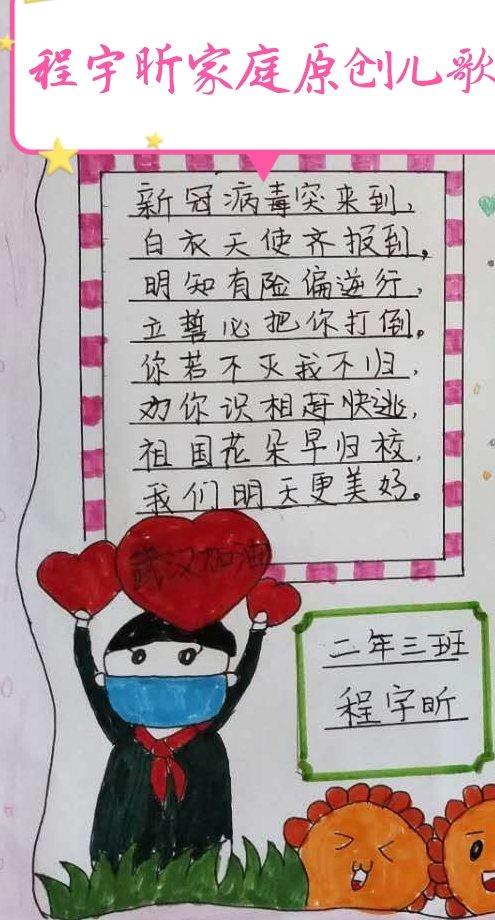 程宇昕家庭原创儿歌
新冠病毒突来到，
白衣天使齐报到。
明知有险偏逆行，
立誓必把你打倒。
你若不灭我不归，
劝你识相赶快逃，
祖国花朵早归校，
我们明天更美好。
武汉加油
二年三班
程宇昕